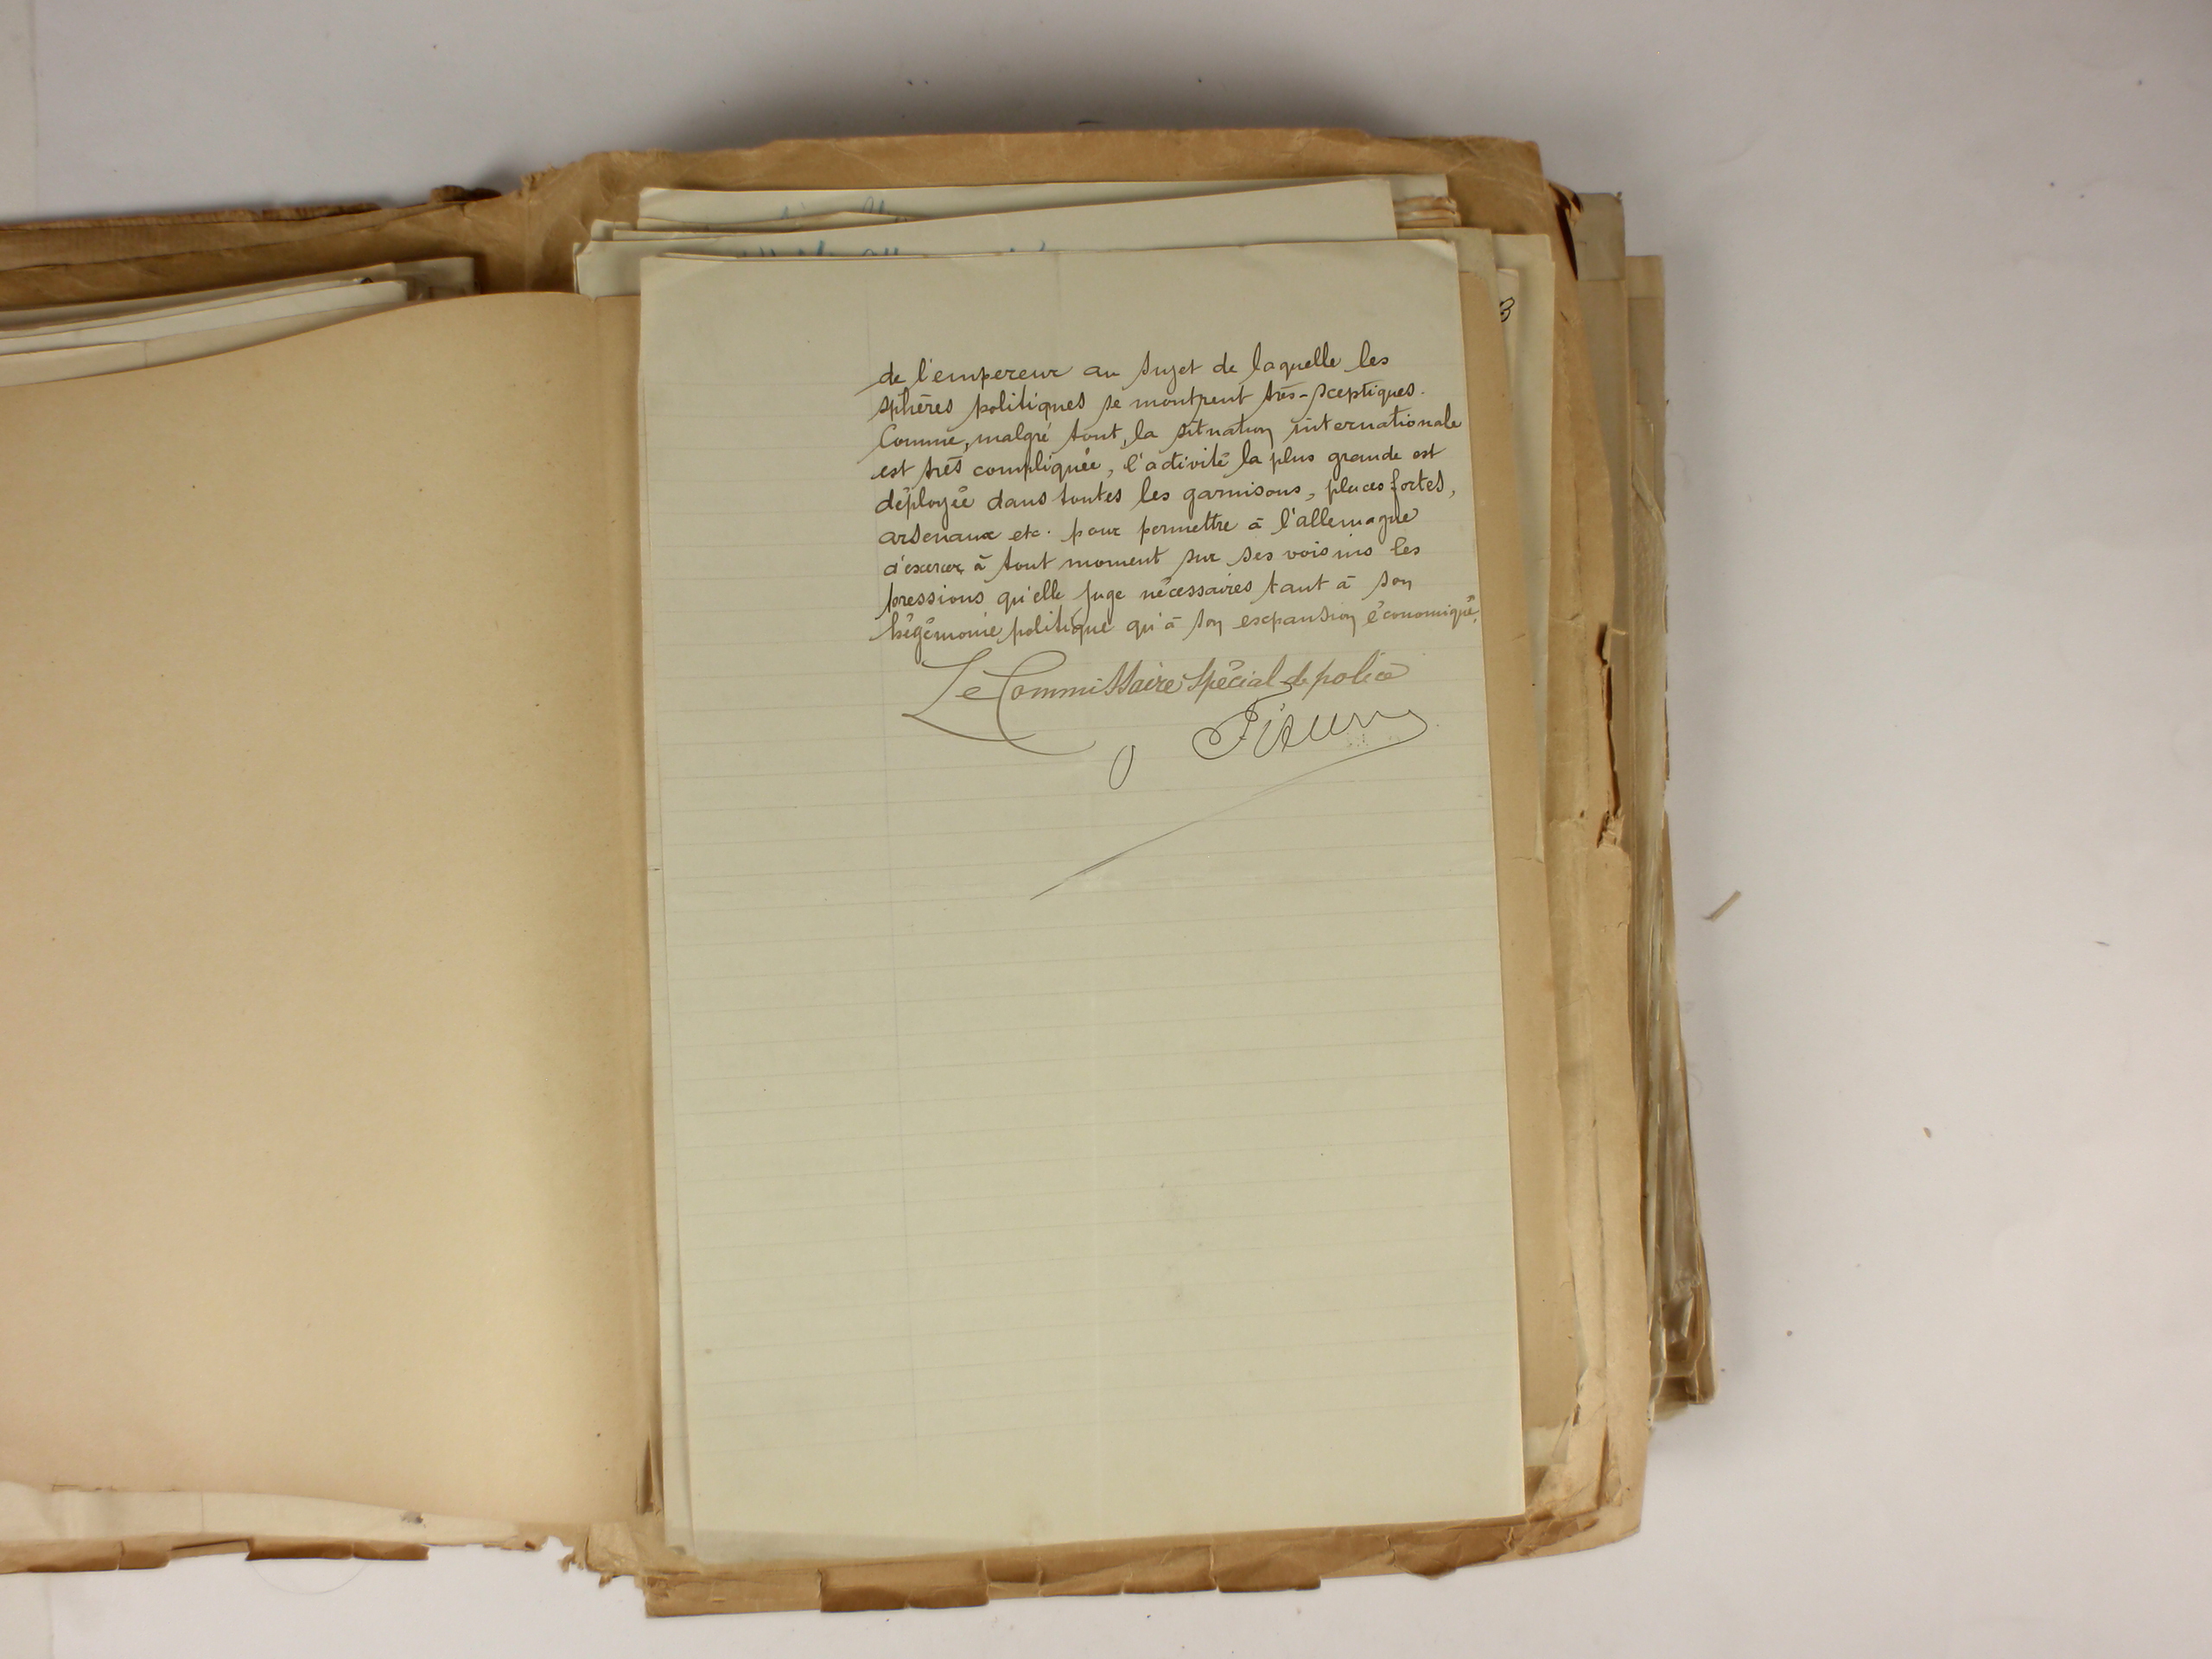 de l'empereur au sujet de laquelle les
sphères politiques se montrent très-sceptiques.
Comme, malgré tout, la situation internationale
est très compliquée, l'activité la plus grande est
déployée dans toutes les garnisons, places fortes,
arsenaux etc. pour permettre à l'allemagne
d'exercer à tout moment sur ses voisins les
pressions qu'elle juge nécessaires tant à son
hégémonie politique qu'à son expansion économique.
Le Commissaire Spécial de police